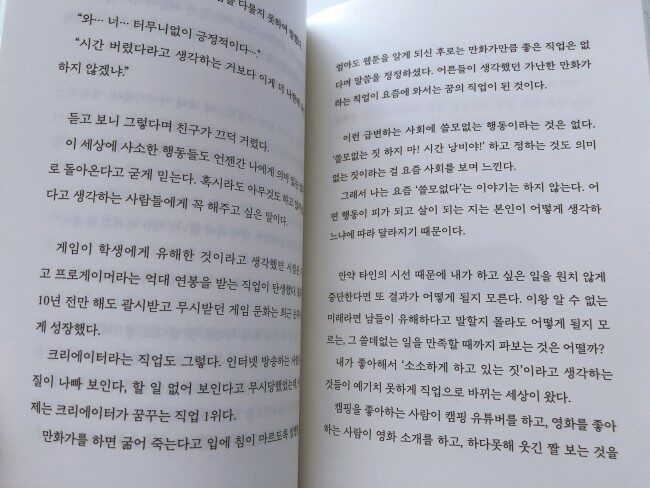 다물지 못하며 말했다.
“와… 너… 터무니없이 긍정적이다…”
“시간 버렸다라고 생각하는 거보다 이게 더
하지 않겠냐.”
듣고 보니 그렇다며 친구가 끄덕 거렸다.
이 세상에 사소한 행동들도 언젠간 나에게 의미 있는
로 돌아온다고 굳게 믿는다. 혹시라도 아무것도 하고
다고 생각하는 사람들에게 꼭 해주고 싶은 말이다.
게임이 학생에게 유해한 것이라고 생각했던 시절을
고 프로게이머라는 억대 연봉을 받는 직업이 탄생했다.
10년 전만 해도 괄시받고 무시받던 게임 문화는 최근
게 성장했다.
크리에이터라는 직업도 그렇다. 인터넷 방송하는
질이 나빠 보인다, 할 일 없어 보인다고 무시당했었는데
제는 크리에이터가 꿈꾸는 직업 1위다.
만화가를 하면 굶어 죽는다고 입에 침이 마르도록
얼마도 웹툰을 알게 되신 후로는 만화가만큼 좋은 직업은 없
다며 말씀을 정정하셨다. 어른들이 생각했던 가난한 만화가
하는 직업이 요즘에 와서는 꿈의 직업이 된 것이다.
이런 급변하는 사회에 쓸모없는 행동이라는 것은 없다.
‘쓸모없는 짓 하지 마! 시간 낭비야!’ 하고 정하는 것도 의미
없는 짓이라는 걸 요즘 사회를 보며 느낀다.
그래서 나는 요즘 ‘쓸모없다’는 이야기는 하지 않는다. 어
떤 행동이 피가 되고 살이 되는 지는 본인이 어떻게 생각하
느냐에 따라 달라지기 때문이다.
만약 타인의 시선 때문에 내가 하고 싶은 일을 원치 않게
중단한다면 또 결과가 어떻게 될지 모른다. 이왕 알 수 없는
미래라면 남들이 유해하다고 말할지 몰라도 어떻게 될지 모
르는, 그 쓸데없는 일을 만족할 때까지 파보는 것은 어떨까?
내가 좋아해서 ‘소소하게 하고 있는 짓’이라고 생각하는
것들이 예기치 못하게 직업으로 바뀌는 세상이 왔다.
캠핑을 좋아하는 사람이 캠핑 유튜버를 하고, 영화를 좋아
하는 사람이 영화 소개를 하고, 하다못해 웃긴 짤 보는 것을